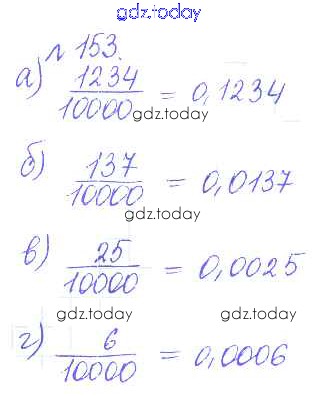 gdz.today
№ 153.
а) 1234/10000 = 0,1234
gdz.today
б) 137/10000 = 0,0137
gdz.today
в) 25/10000 = 0,0025
gdz.today gdz.today
г) 6/10000 = 0,0006
gdz.today